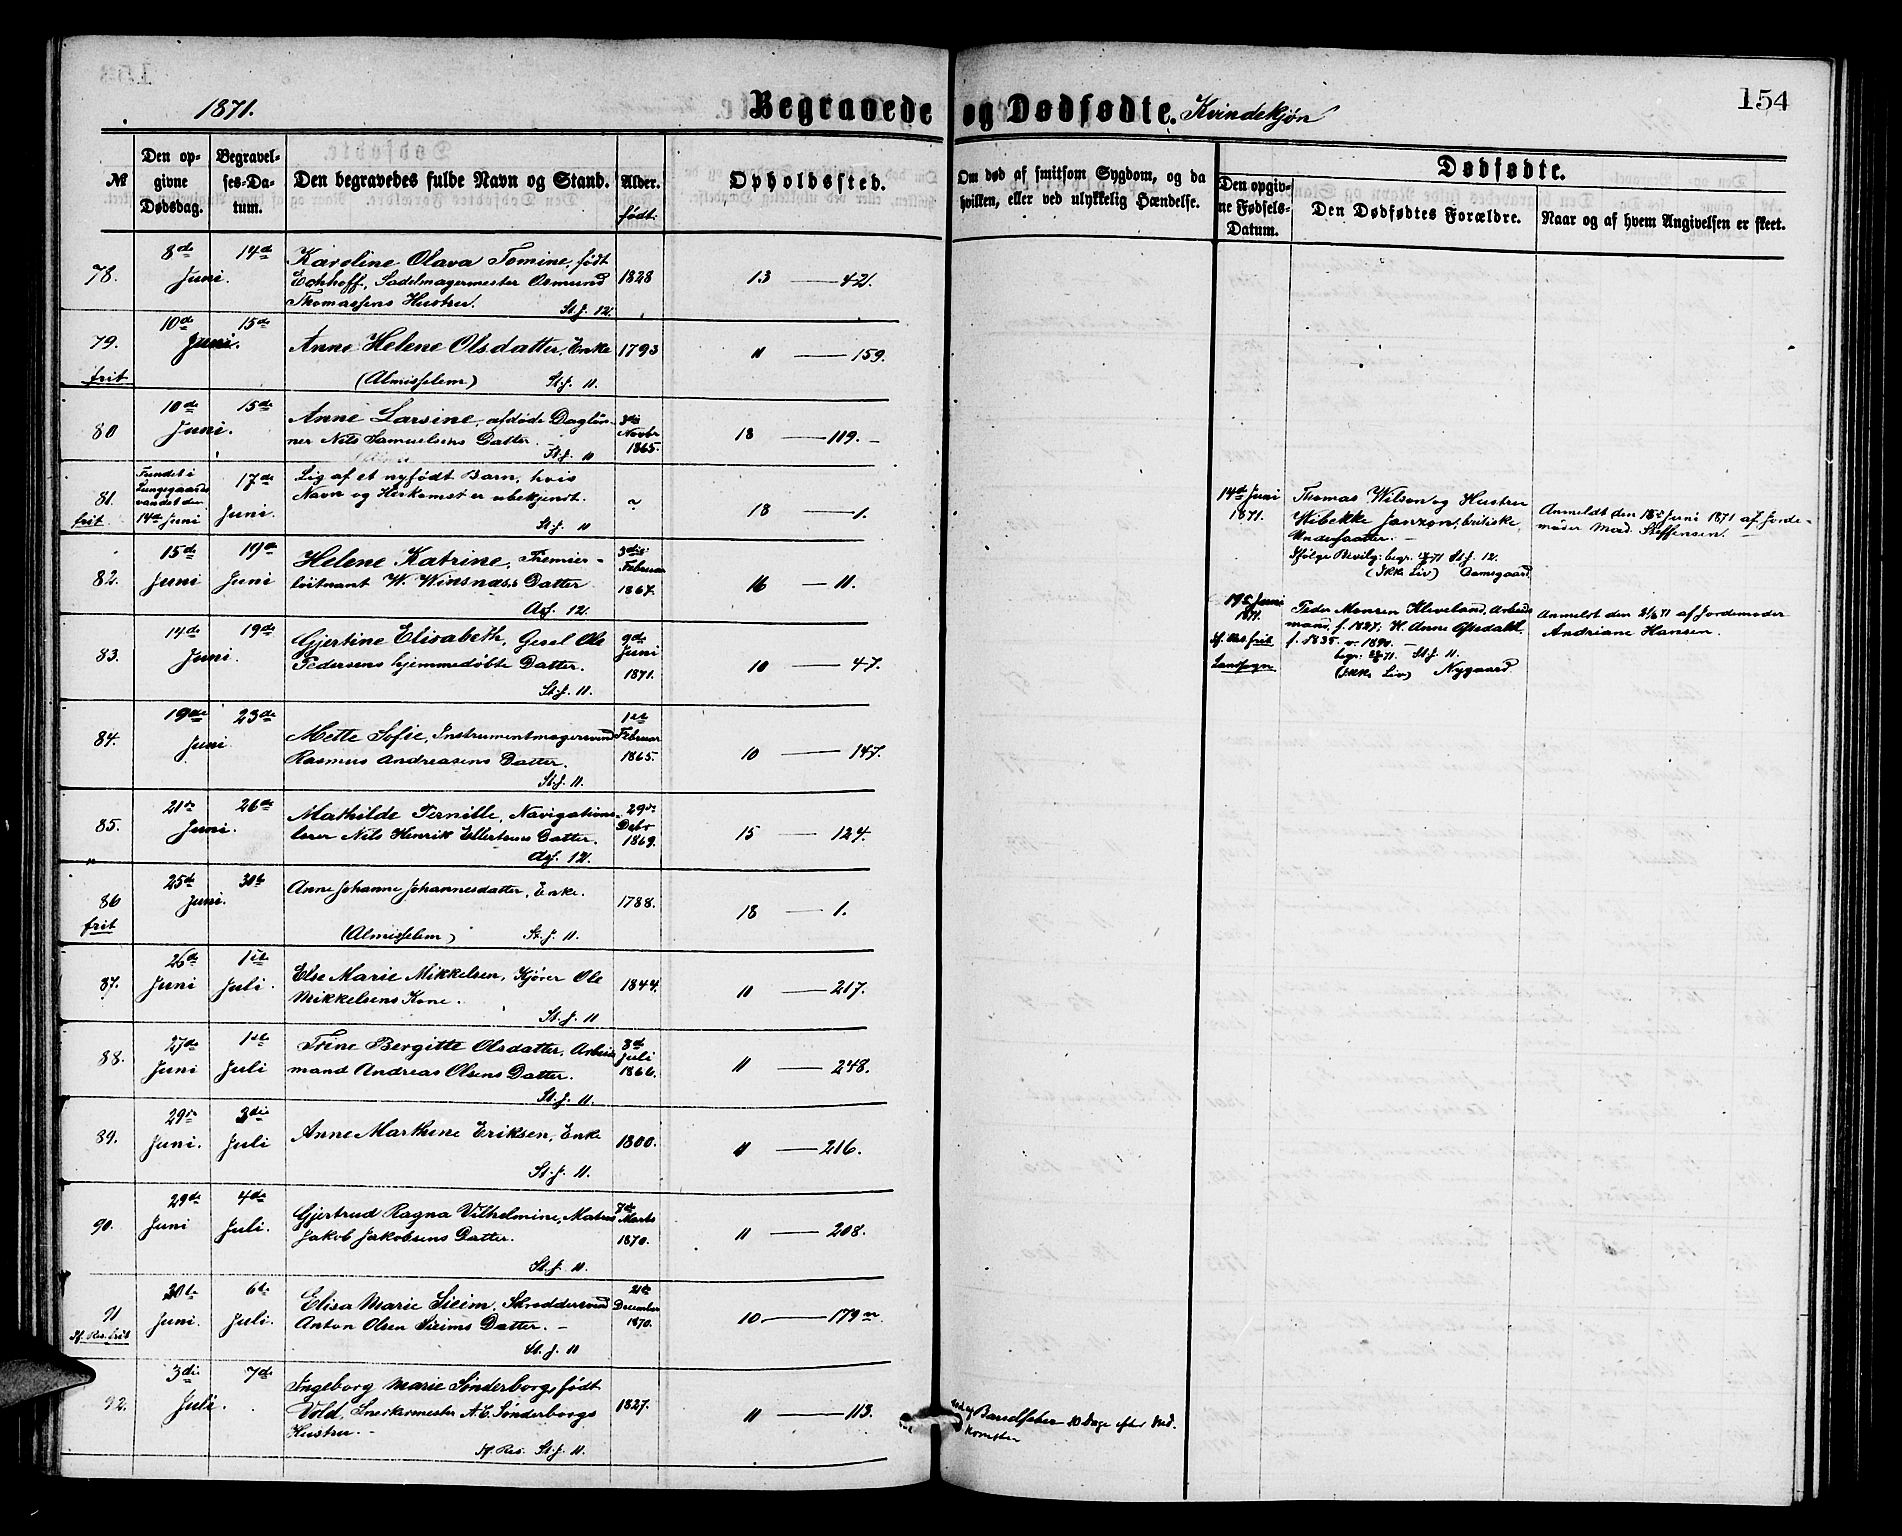 1871.
Begravede og Dødfødte. Kvindekjøn
154
№
Den op-
givne
Dødsdag.
Begravel-
ses-Da-
tum.
Den begravedes fulde Navn og Stand.
Alder.
født.
Opholdssted.
Om død af smitsom Sygdom, og da
hvilken, eller ved ulykkelig Hændelse.
Dødfødte.
Den opgiv-
ne Fødsels-
Datum.
Den Dødfødtes Forældre.
Naar og af hvem Angivelsen er skeet.
78.
8de
14de
Juni.
Karoline Olava Tomine, født
Echhoff, Sadelmagermester Osmund
Thomassens Hustru.
St. J. 12.
1828
13 — 42.
79.
frit
10de
15de
Juni.
Anne Helene Olsdatter, Enke
(Almisselem) St. J. 11.
1793
11 — 159.
80
10de
15de
Juni.
Anne Larsine, afdøde Dagløn-
ner Nils Samuelsens Datter. —
St. J. 11
3die
Novbr
1865.
18 — 119. –
81.
frit
Fundet i
Lungegaards
vandet den
14de Juni
17de
Juni.
Lig af et nyfødt Barn, hvis
Navn og Herkomst er ubekjendt.
St. J. 11
~
18 — 1.
82.
15de
Juni
19de
Juni
Helene Katrine, Premier-
løitnant W. Winsnæs's Datter
As. 12.
3die
Februar
1867.
16 — 11.
83.
14de
19de
Juni.
Gjertine Elisabeth, Gesel Ole
Pedersens hjemmedøbte Datter.
St. J. 11.
9de
Juni
1871.
10 — 47.
84.
19de
23de
Juni.
Mette Sofie, Instrumentmagersvend
Rasmus Andreasens Datter.
St. J. 11.
1ste
Februar
1865.
10 — 147.
85.
21de
26de
Juni.
Mathilde Pernille, Navigations-
lærer Nils Henrik Ellertsens Datter.
As. 12.
29de
Debr
1869.
15 — 124.
86
frit
25de
30te
Juni.
Anne Johanne Johannesdatter, Enke.
(Almisselem) St. J. 11.
1788.
18 — 1.
87.
26de
Juni
1ste
Juli.
Else Marie Mikkelsen, Kjører Ole
Mikkelsens Kone.
St. J. 11
1844.
11 — 217.
88.
27de
Juni
1ste
Juli
Trine Bergitte Olsdatter, Arbeids
mand Andreas Olsens Datter.
St. J. 11.
8de
Juli
1866.
11 — 248.
89.
29de
Juni.
3die
Juli
Anne Marthine Eriksen, Enke
St. J. 11.
1800.
11 — 216.
90.
29de
Juni
4de
Juli.
Gjertrud Ragna Vilhelmine, Matros
Jakob Jakobsens Datter.
St. J. 11.
7de
Marts
1870.
11 — 208.
91
Sf. Res. frit
30te
Juni.
6te
Juli.
Elisa Marie Sieim, Skræddersvend
Anton Olsen Sieims Datter. –
St. J. 11
21de
December
1870.
10 — 179
92.
3die
7de
Juli.
Ingeborg Marie Sønderborg, født
Vold, Snedkermester A. C. Sønderborgs
Hustru. –
Sf. Res. St. J. 11.
1827.
11 — 113.
Barselfeber 10 Dage efter Ned-
komsten
14de Juni
1871.
Thomas Wilson og Hustru
Wibekke Janzon, britiske
Undersaatter. –
Ifølge Bevilg: begr. 71 St. J. 12.
(Ikke Liv) Damsgaard
Anmeldt den 18de Juni 1871 af Jorde-
moder Mad. Steffensen.
19de Juni
1871.
Sf. Res frit
Landsogn
Peder Monsen Kleveland, Arbeids
mand, f. 1827; H. Anne Aftedahl
f. 1835.
begr: 71. — St. J. 11.
(Ikke Liv) Nygaard
Anmeldt den 21/6 71 af Jordemoder
Andriane Hansen.